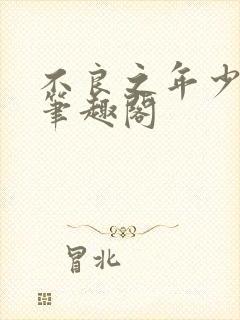 不良之年少
筆趣閣
冒北